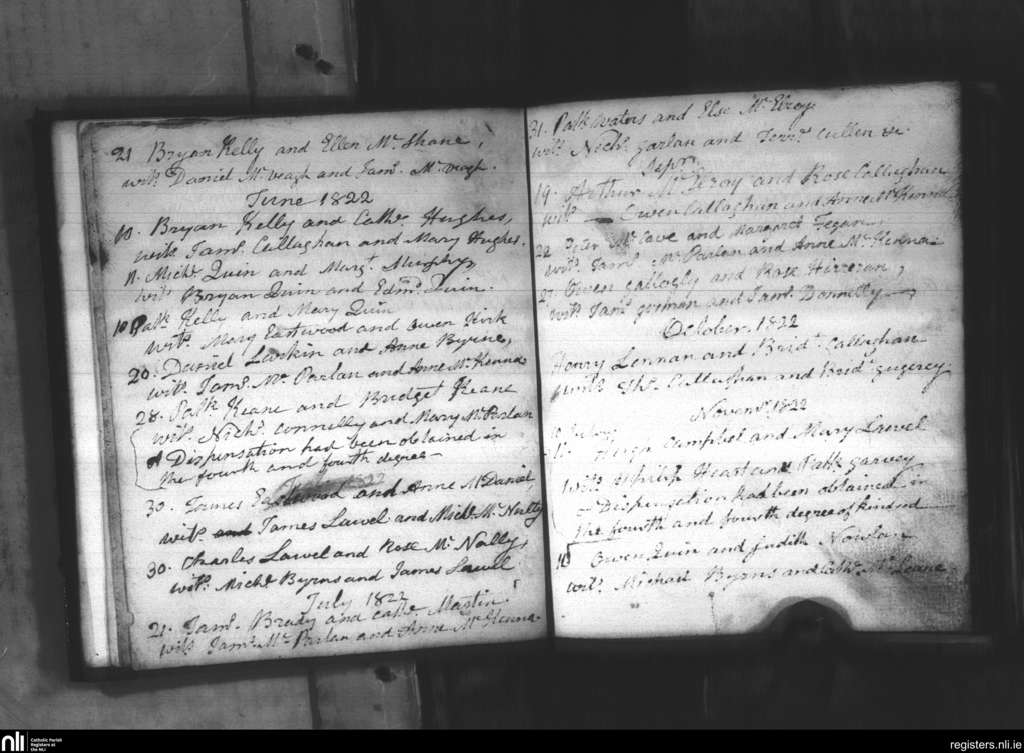 21 Bryan Kelly and Ellen Mc Shane,
witss Daniel Mc veagh and Jams. Mc veagh.
June 1822
10. Bryan Kelly and Cathe. Hughes,
witss Jams. Callaghan and Mary Hughes.
11. Michl. Quin and Margt. Murphy,
witss Bryan Quin and Edmd. Quin.
18 Patk Kelly and Mary Quin
witss. Mary Eastwood and Owen Kirk
20. Daniel Larkin and Anne Byrne,
witss Jams. Mc Parlan and Anne Mc Kenna
28. Patk Keane and Bridget Keane
witss. Nichs. Connelly and Mary Mc Parlan
A Dispensation had been obtained in
the fourth and fourth degree
30. James Eastwood and Anne McDaniel
witss and James Lawel and Michl. Mc Nulty
30. Charles Lawel and Rose Mc Nally,
witss. Michl Byrns and James Lawel
July 1822
21. Jams. Brady and Cathe Martin
witss Jams. Mc Parlan and Anne Mc Kenna
31. Patk Waters and Else Mc Elroy
witss Nichs. Garlan and Cullen &c.
19. Arthur Mc Elroy and Rose Callaghan
witss Owen Callaghan and
22 Peter Mc Cave and Margaret Fegan
witss. Jams. Mc Parlan and Anne Mc Kenna
27 Owen Callogly and Rose
witss Jams. Gorman and Jams. Donnelly
October 1822
Henry Lennan and Bridt. Callaghan
witss Ths. Callaghan and Bridt.
Novemr. 1822
Hugh Campbel and Mary Lavel
witss Philip Heart and Patk Garvey
Dispensation had been obtained in
the fourth and fourth degree of kindred
Owen Quin and Judith Nowlan
witss. Michael Byrns and Cathe. Mc
nli
Catholic Parish
Registers at
the NLI
registers.nli.ie